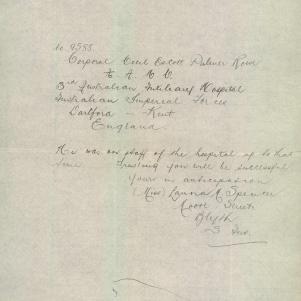 No. 9588.
Corporal Cecil Escott Palmer Rowe
A. M. C.
3rd Australian Auxiliary Hospital
Australian Imperial Force
Dartford - Kent
England.
He was on staff of the hospital up to that
time Trusting you will be successful
Yours in anticipation
(Miss) Laura A Spencer
Moore Street
Blyth
S. Aus.